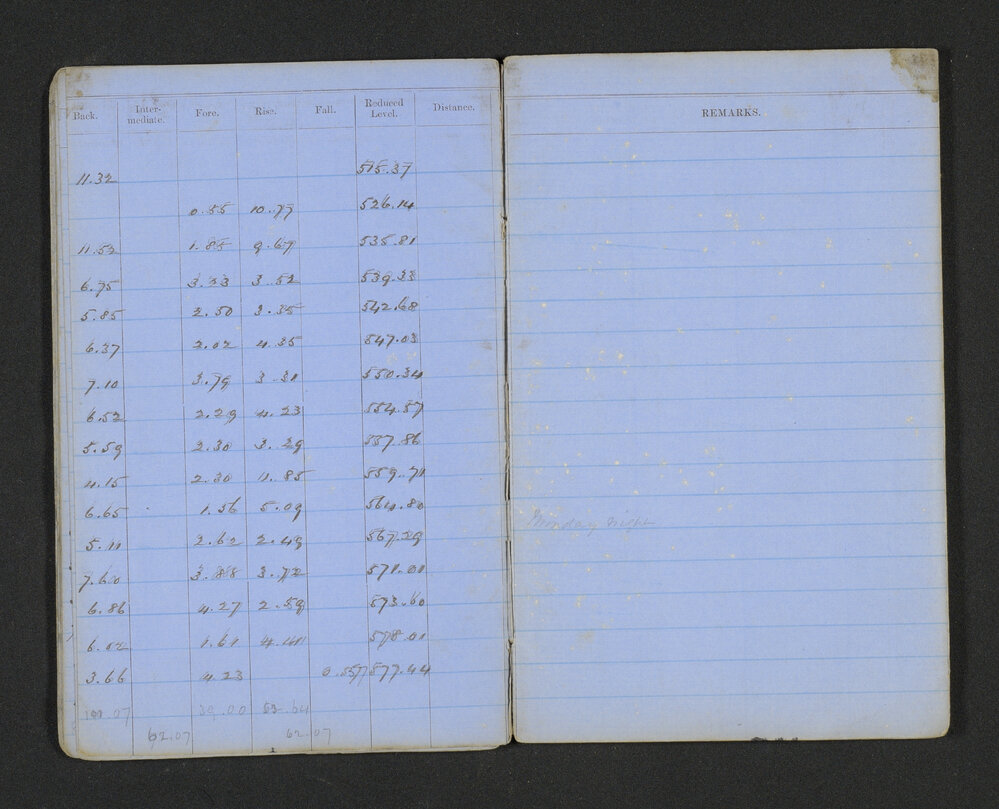 Back. Inter-mediate. Fore. Rise. Fall. Reduced Level. Distance.
11.32 515.37
0.55 10.77 526.14
11.52 1.85 9.67 535.81
6.75 3.23 3.52 539.33
5.85 2.50 3.35 542.68
6.37 2.02 4.35 547.03
7.10 3.79 3.31 550.34
6.52 2.29 4.23 554.57
5.59 2.30 3.29 557.86
4.15 2.30 1.85 559.71
6.65 1.56 5.09 564.80
5.11 2.62 2.49 567.29
7.60 3.88 3.72 571.01
6.86 4.27 2.59 573.60
6.02 1.61 4.41 578.01
3.66 4.23 0.57 577.44
101.07 39.00
62.07 62.07
REMARKS.
Monday night